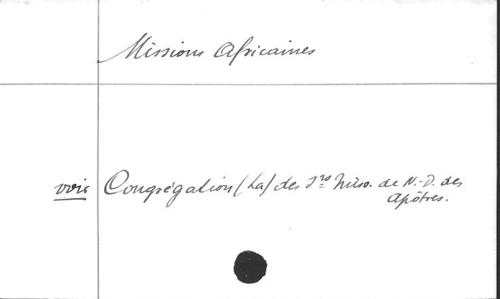 Missions Africaines
voir Congrégation (La) des Srs Miss. de N.-D. des
Apôtres.